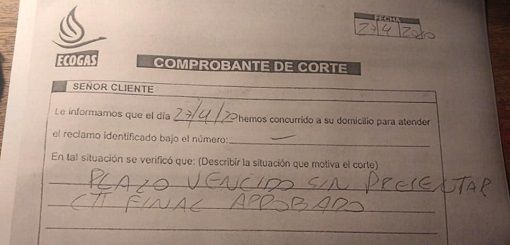 ECOGAS
COMPROBANTE DE CORTE
FECHA
27 4 2020
SEÑOR CLIENTE
Le informamos que el día 27/4/20 hemos concurrido a su domicilio para atender
el reclamo identificado bajo el número: —
En tal situación se verificó que: (Describir la situación que motiva el corte)
PLAZO VENCIDO SIN PRESENTAR
FINAL APROBADO